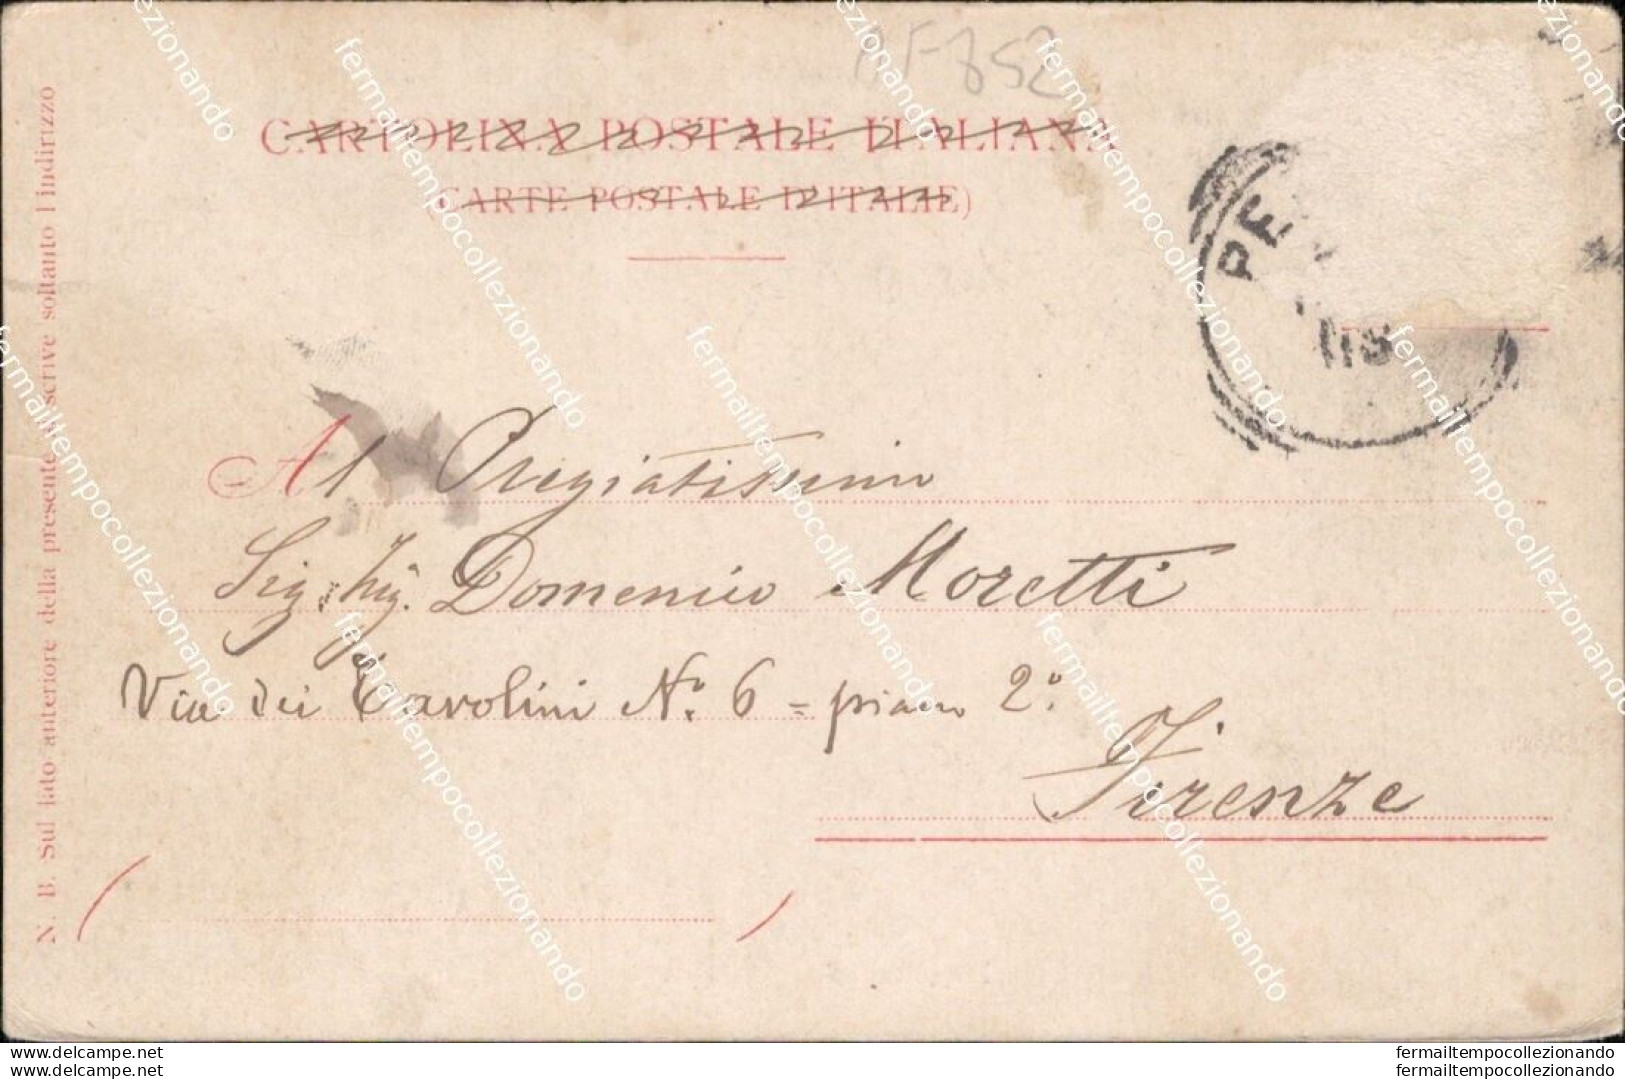 BF852
CARTOLINA POSTALE ITALIANA
(CARTE POSTALE D'ITALIE)
N. B. Sul lato anteriore della presente si scrive soltanto l'indirizzo
PE
Al Pregiatissimo
Sig. Ing. Domenico Moretti
Via dei Tavolini N.° 6 = piano 2.°
Firenze
fermailtempocollezionando
www.delcampe.net
www.delcampe.net
fermailtempocollezionando
fermailtempocollezionando